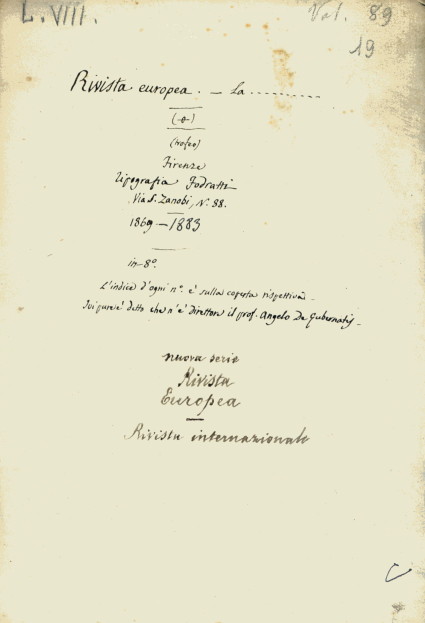 L. VIII.
Vol. 89
19
Rivista europea. — La ..........
(-o-)
(trofeo)
Firenze
Tipografia Fodratti
Via S. Zanobi, N. 88.
1869 — 1883
in-8º.
L'indice d'ogni nº. è sulla coperta rispettiva.
Ivi pure è detto che n'è direttore il prof. Angelo De Gubernatis.
nuova serie
Rivista
Europea
Rivista internazionale